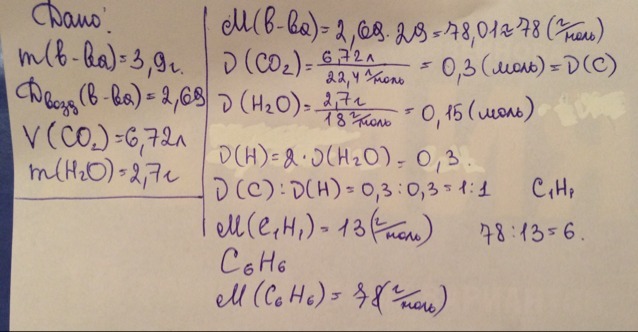 Дано:
m(в-ва)=3,9г.
Dвозд(в-ва)=2,69
V(CO₂)=6,72л
m(H₂O)=2,7г
M(в-ва)=2,69·29=78,01≈78(г/моль)
ν(CO₂)=6,72л/22,4л/моль=0,3(моль)=ν(C)
ν(H₂O)=2,7г/18г/моль=0,15(моль)
ν(H)=2·ν(H₂O)=0,3.
ν(C):ν(H)=0,3:0,3=1:1 C₁H₁
M(C₁H₁)=13(г/моль) 78:13=6.
C₆H₆
M(C₆H₆)=78(г/моль)